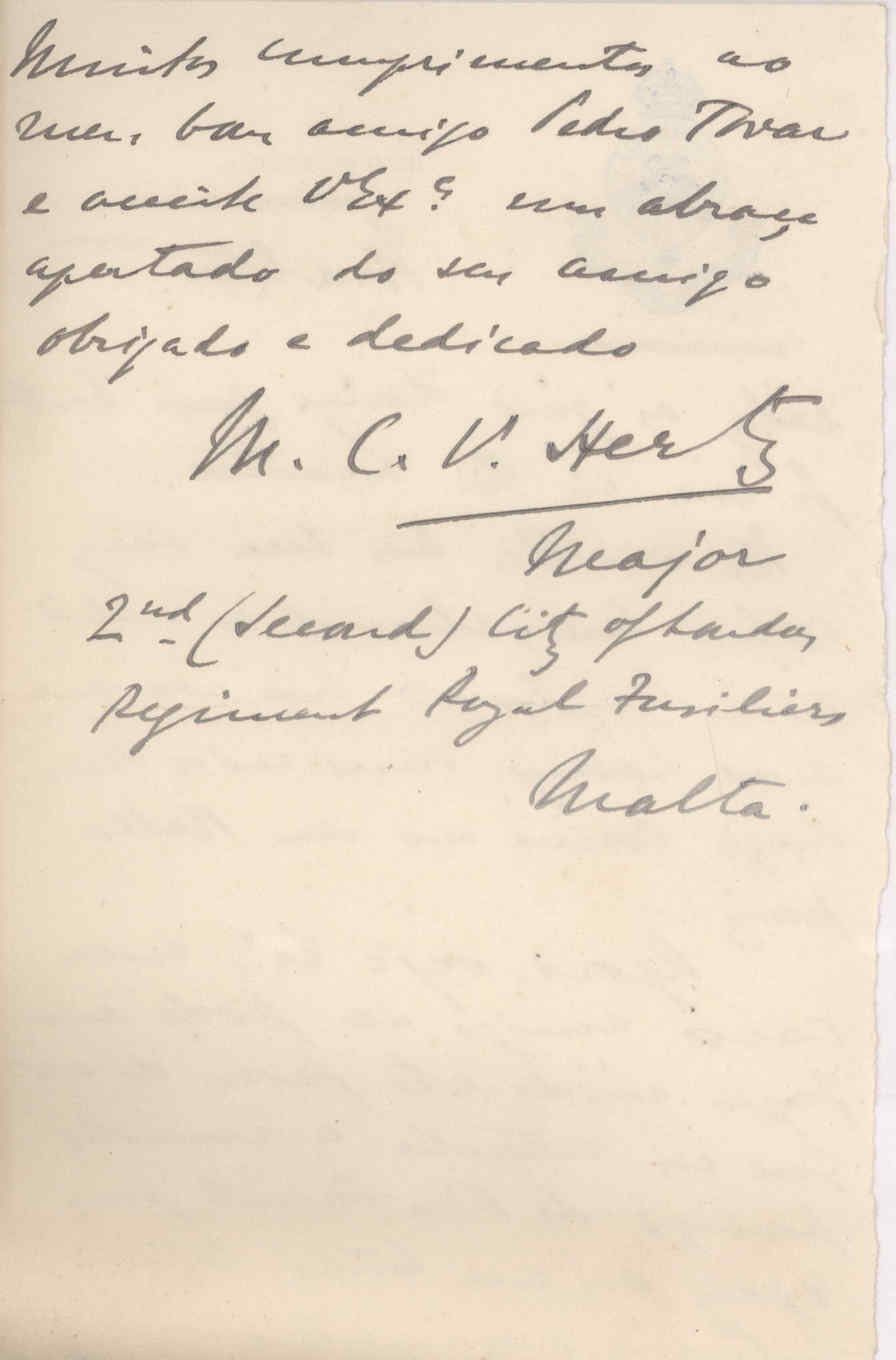 Muitos cumprimentos ao
meu bom amigo Pedro Tovar
e aceite V. Exª. um abraço
apertado do seu amigo
obrigado e dedicado
M. C. V. Hertz
Major
2nd (Second) City of London
Regiment Royal Fusiliers
Malta.